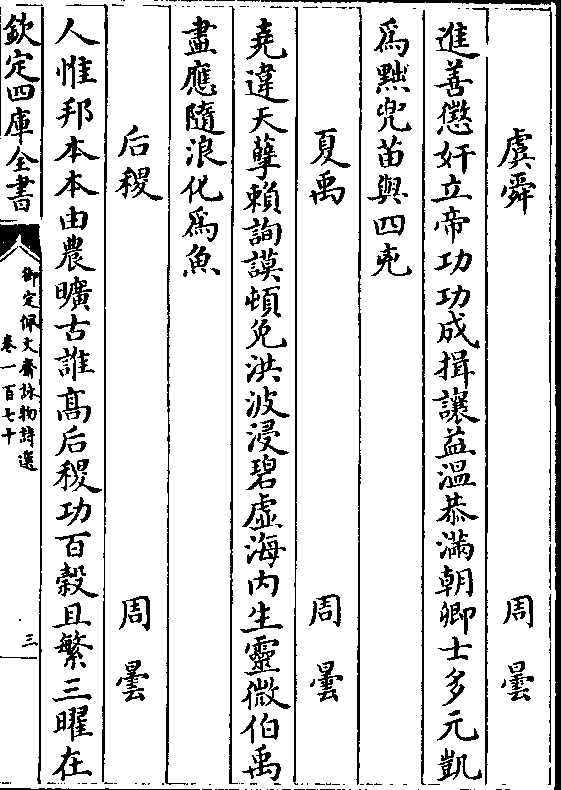 虞舜 周曇
進善懲奸立帝功功成揖讓益溫恭滿朝卿士多元凱
爲黜兜苗與四兇
夏禹 周曇
堯違天孽賴詢謨頓免洪波浸碧虛海内生靈微伯禹
盡應隨浪化爲魚
后稷 周曇
人惟邦本本由農曠古誰髙后稷功百穀且繁三曜在
欽定四庫全書
御定佩文齋詠物詩選
卷一百七十
三